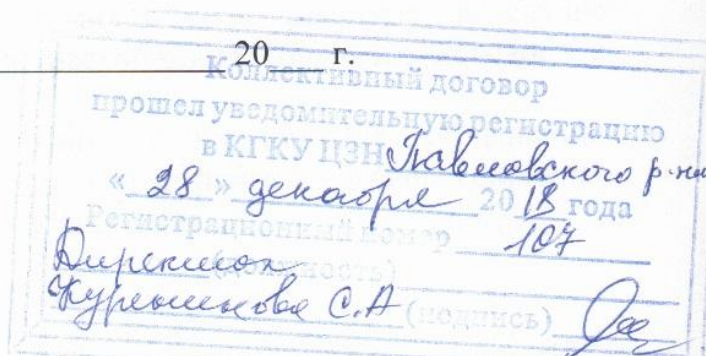 20 г.
Коллективный договор
прошел уведомительную регистрацию
в КГКУ ЦЗН Павловского р-на
« 28 » декабря 2018 года
Регистрационный номер 107
Директор (должность)
С.А (подпись)